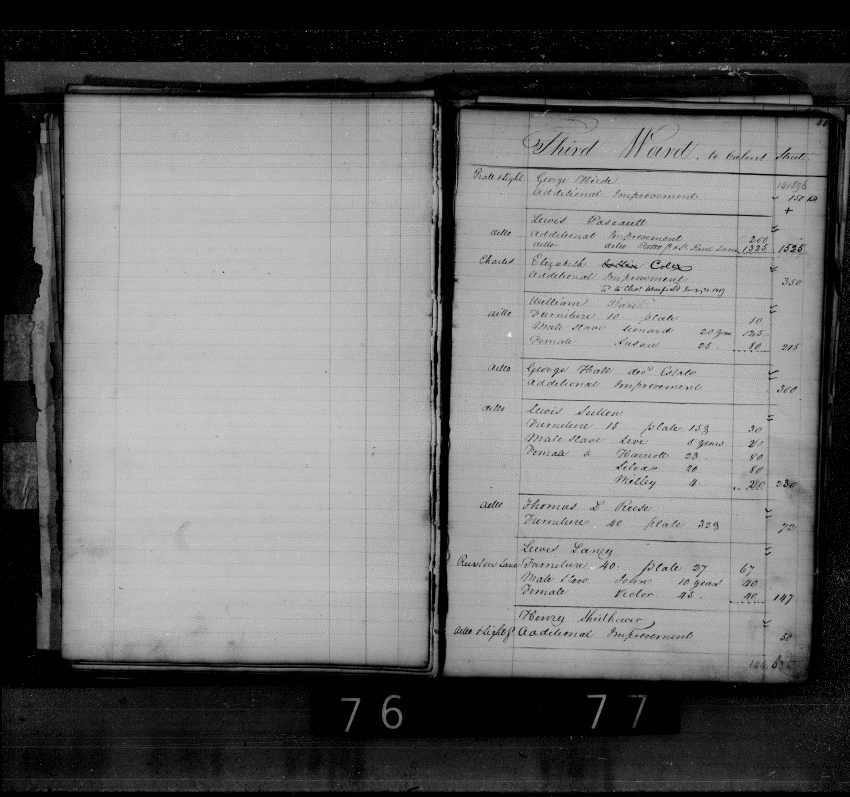 Third Ward, to Calvert Street
Pratt & Light George
Additional Improvements " 150
+
Lewis Pascault "
ditto Additional Improvement 200
ditto ditto 1325 1525
Charles Elizabeth Coley "
Additional Improvement 350
William "
ditto Furniture 10 plate 10
Male slave Leonard 20 years 125
Female Susan 25 80 215
ditto George Hall decd Estate "
Additional Improvement 300
ditto Lewis Sutton "
Furniture 15 plate 15 30
Male slave Levi 5 years 20
Female do Harriott 23 80
Silvas 20 80
Milley 4 20 230
ditto Thomas L Reese "
Furniture 40 plate 32 72
Lewis Laney "
Ruxton Lane Furniture 40 plate 27 67
Male slave John 10 years 40
Female Victor 45 40 147
Henry "
ditto & Light St Additional Improvement 50
144
76 77